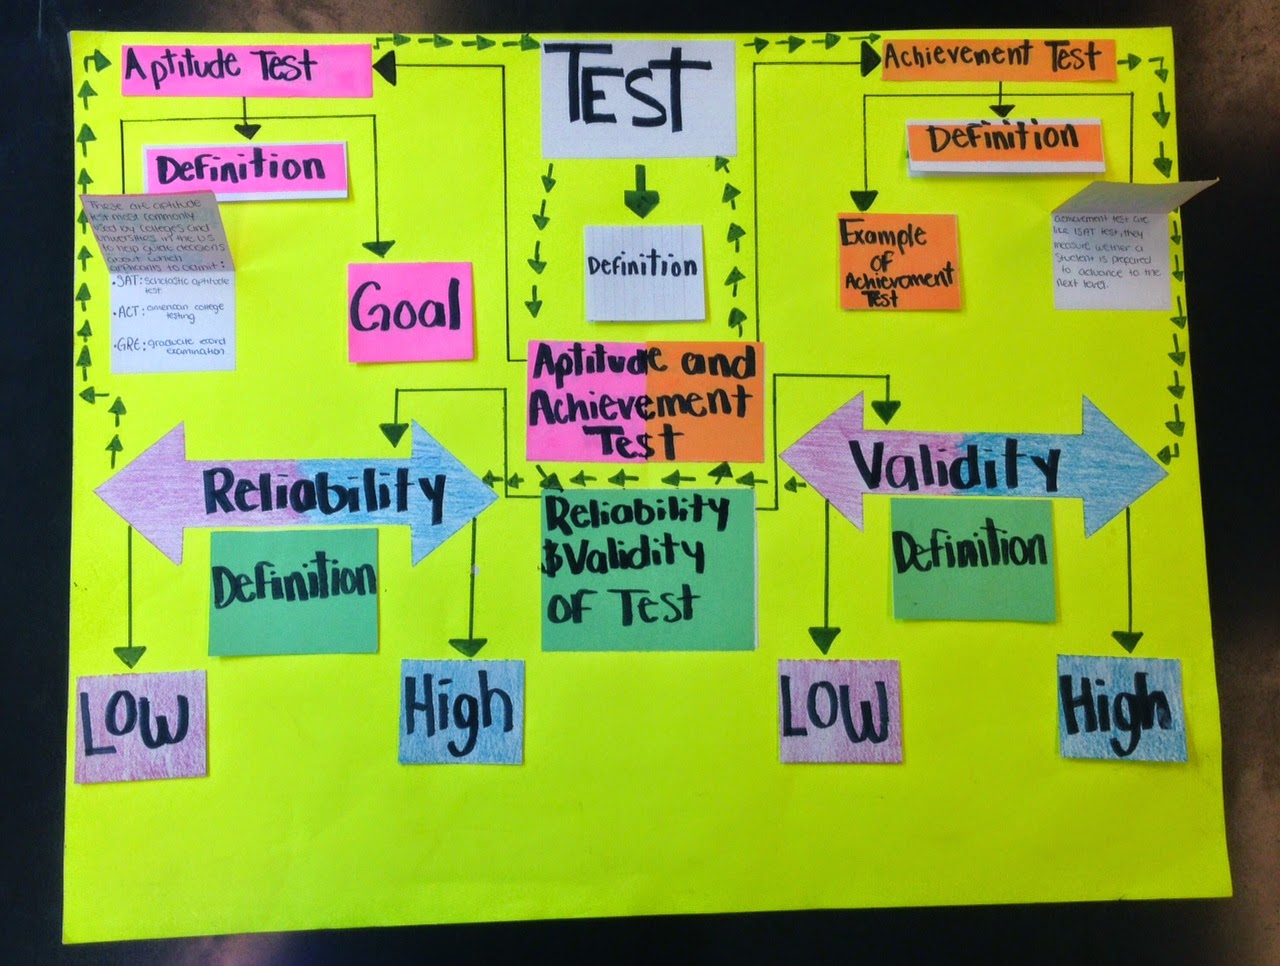 Aptitude Test
TEST
Achievement Test
Definition
Definition
Definition
These are aptitude
test most commonly
used by Colleges and
Universities in the US
to help guide decisions
about which
applicants to admit:
• SAT: Scholastic aptitude
test
• ACT: american college
testing
• GRE: graduate record
examination
Goal
Example
of
Achievement
Test
achievement test are
like ISAT test, they
measure wether a
student is prepared
to advance to the
next level.
Aptitude and
Achievement
Test
Reliability
Validity
Definition
Reliability
& Validity
of Test
Definition
Low
High
Low
High